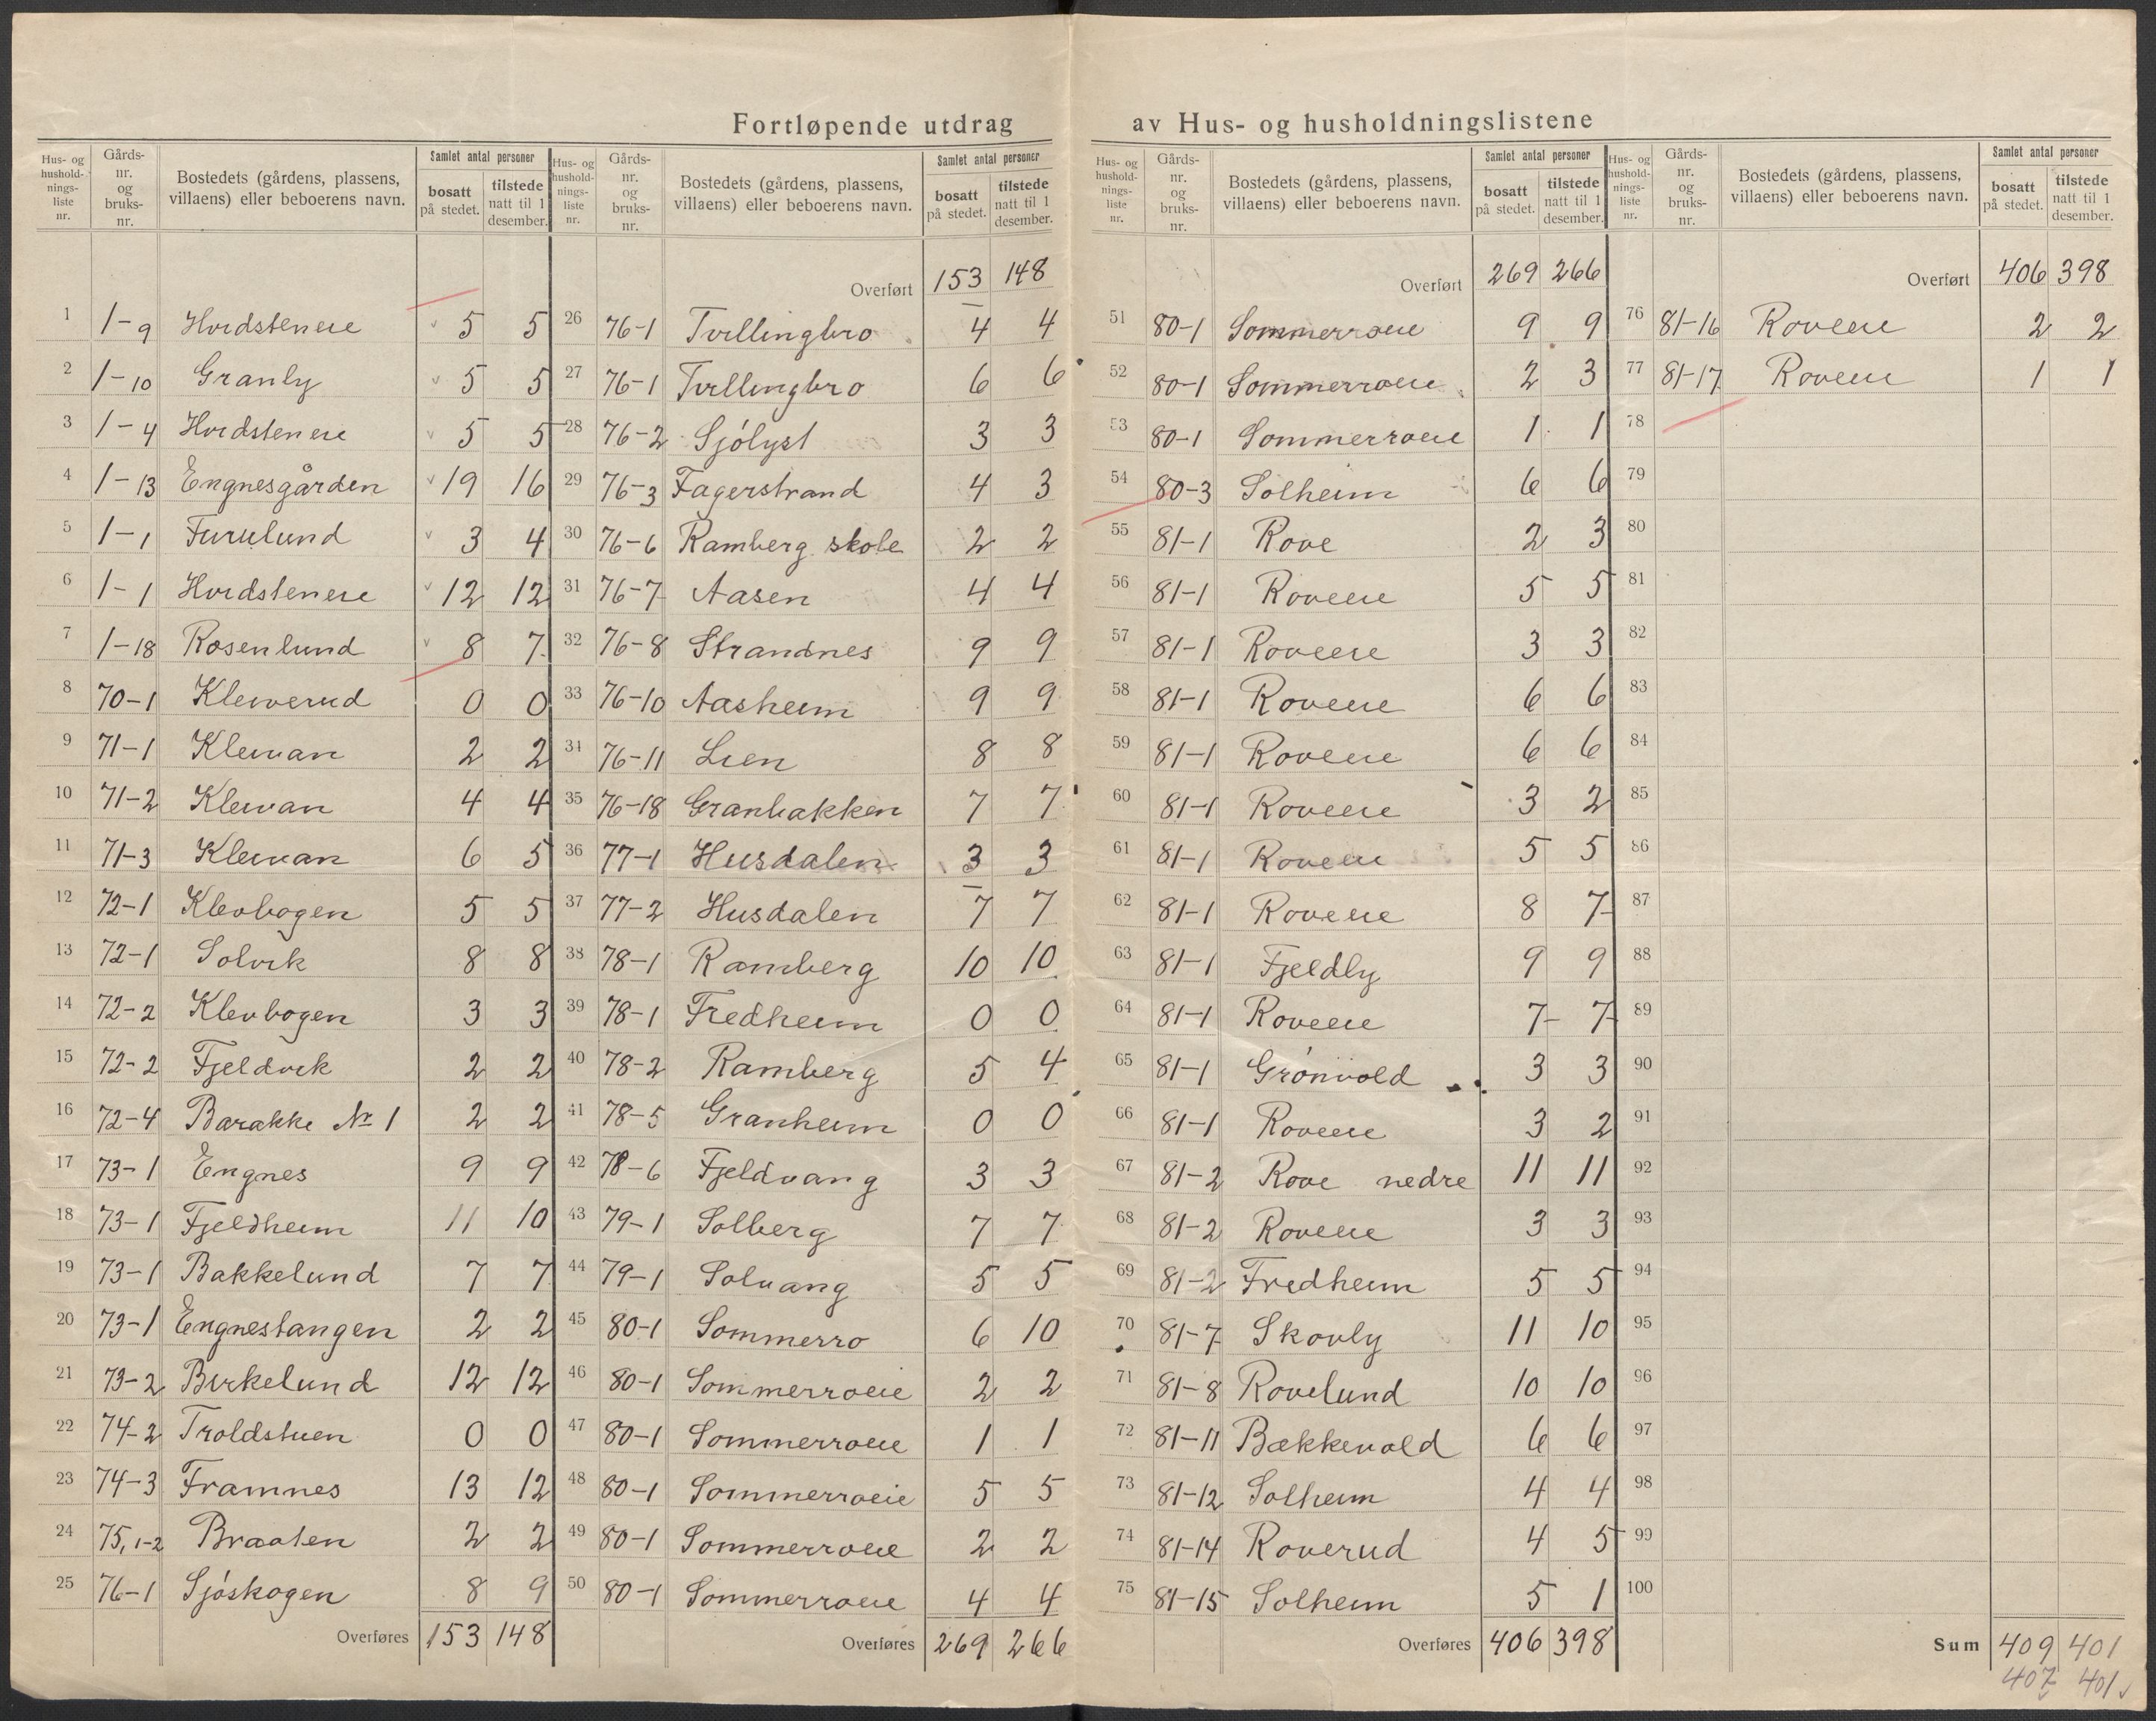 Fortløpende utdrag av Hus- og husholdningslistene
Hus- og hushold-nings-liste nr. Gårds-nr. og bruks-nr. Bostedets (gårdens, plassens, villaens) eller beboerens navn. Samlet antal personer bosatt på stedet. tilstede natt til 1 desember.
1 1-9 Hvidsteneie 5 5
2 1-10 Granly 5 5
3 1-4 Hvidsteneie 5 5
4 1-13 Engnesgården 19 16
5 1-1 Furulund 3 4
6 1-1 Hvidsteneie 12 12
7 1-18 Rosenlund 8 7
8 70-1 Kleiverud 0 0
9 71-1 Kleivan 2 2
10 71-2 Kleivan 4 4
11 71-3 Kleivan 6 5
12 72-1 Klevbogen 5 5
13 72-1 Solvik 8 8
14 72-2 Klevbogen 3 3
15 72-2 Fjeldvik 2 2
16 72-4 Barakke № 1 2 2
17 73-1 Engnes 9 9
18 73-1 Fjeldheim 11 10
19 73-1 Bakkelund 7 7
20 73-1 Engnestangen 2 2
21 73-2 Birkelund 12 12
22 74-2 Troldstuen 0 0
23 74-3 Framnes 13 12
24 75,1-2 Braaten 2 2
25 76-1 Sjöskogen 8 9
Overføres 153 148
Hus- og hushold-nings-liste nr. Gårds-nr. og bruks-nr. Bostedets (gårdens, plassens, villaens) eller beboerens navn. Samlet antal personer bosatt på stedet. tilstede natt til 1 desember.
Overført 153 148
26 76-1 Tvillingbro 4 4
27 76-1 Tvillingbro 6 6
28 76-2 Sjölyst 3 3
29 76-3 Fagerstrand 4 3
30 76-6 Ramberg skole 2 2
31 76-7 Aasen 4 4
32 76-8 Strandnes 9 9
33 76-10 Aasheim 9 9
34 76-11 Lien 8 8
35 76-18 Granbakken 7 7
36 77-1 Husdalen 3 3
37 77-2 Husdalen 7 7
38 78-1 Ramberg 10 10
39 78-1 Fredheim 0 0
40 78-2 Ramberg 5 4
41 78-5 Granheim 0 0
42 78-6 Fjeldvang 3 3
43 79-1 Solberg 7 7
44 79-1 Solvang 5 5
45 80-1 Sommerro 6 10
46 80-1 Sommerroeie 2 2
47 80-1 Sommerroeie 1 1
48 80-1 Sommerroeie 5 5
49 80-1 Sommerroeie 2 2
50 80-1 Sommerroeie 4 4
Overføres 269 266
Hus- og hushold-nings-liste nr. Gårds-nr. og bruks-nr. Bostedets (gårdens, plassens, villaens) eller beboerens navn. Samlet antal personer bosatt på stedet. tilstede natt til 1 desember.
Overført 269 266
51 80-1 Sommerroeie 9 9
52 80-1 Sommerroeie 2 3
53 80-1 Sommerroeie 1 1
54 80-3 Solheim 6 6
55 81-1 Rove 2 3
56 81-1 Roveeie 5 5
57 81-1 Roveeie 3 3
58 81-1 Roveeie 6 6
59 81-1 Roveeie 6 6
60 81-1 Roveeie 3 2
61 81-1 Roveeie 5 5
62 81-1 Roveeie 8 7
63 81-1 Fjeldly 9 9
64 81-1 Roveeie 7 7
65 81-1 Grönvold 3 3
66 81-1 Roveeie 3 2
67 81-2 Rove nedre 11 11
68 81-2 Roveeie 3 3
69 81-2 Fredheim 5 5
70 81-7 Skovly 11 10
71 81-8 Rovelund 10 10
72 81-11 Bækkevold 6 6
73 81-12 Solheim 4 4
74 81-14 Roverud 4 5
75 81-15 Solheim 5 1
Overføres 406 398
Hus- og hushold-nings-liste nr. Gårds-nr. og bruks-nr. Bostedets (gårdens, plassens, villaens) eller beboerens navn. Samlet antal personer bosatt på stedet. tilstede natt til 1 desember.
Overført 406 398
76 81-16 Roveeie 2 2
77 81-17 Roveeie 1 1
78
79
80
81
82
83
84
85
86
87
88
89
90
91
92
93
94
95
96
97
98
99
100
Sum 409 401
407 401